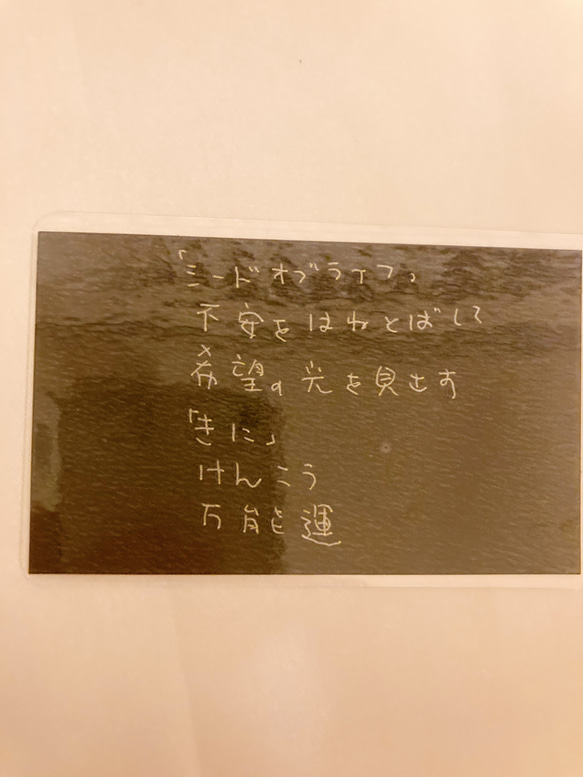 「シードオブライフ」
不安をはねとばして
希望の光を見出す
「きに」
けんこう
万能運